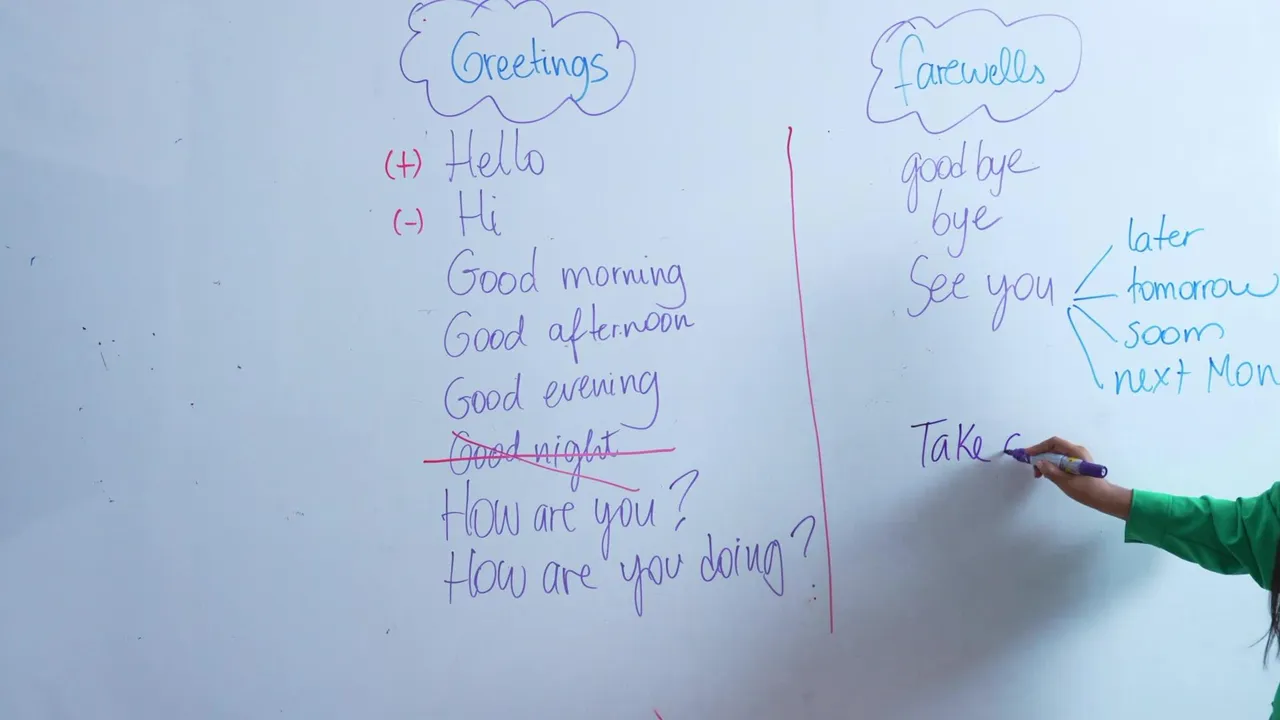 Greetings
(+) Hello
(-) Hi
Good morning
Good afternoon
Good evening
Good night
How are you?
How are you doing?
farewells
good bye
bye
See you
later
tomorrow
soon
next Mon
Take